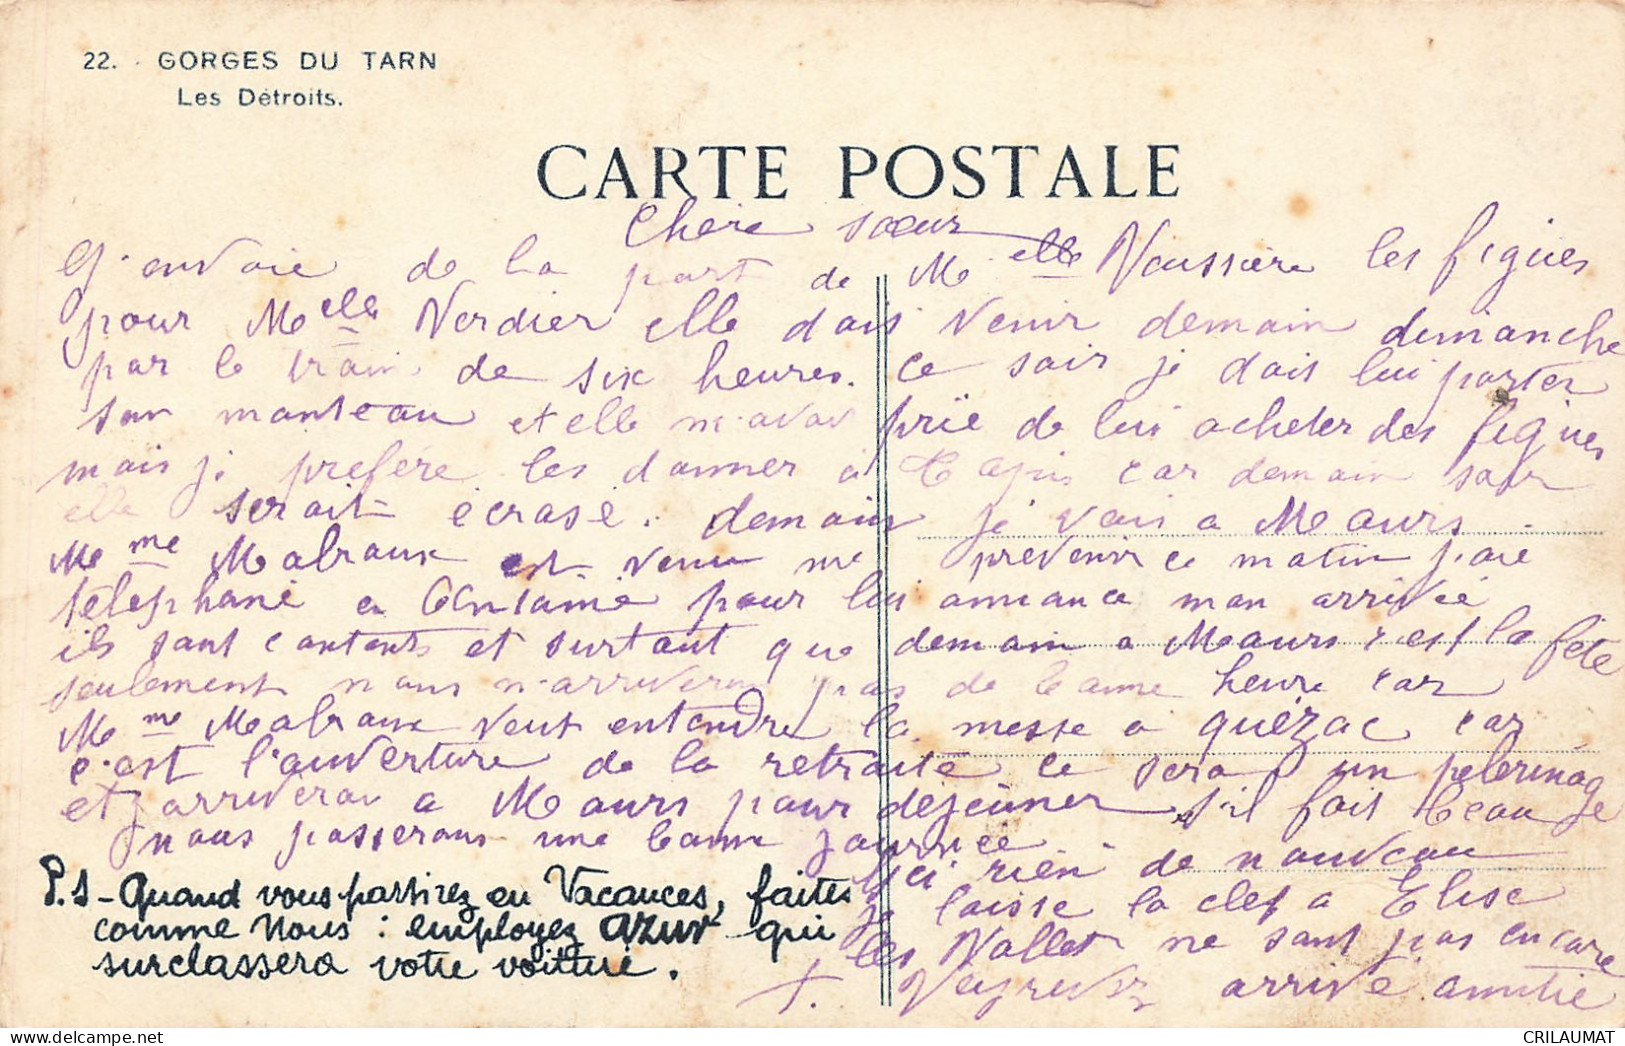 22. - GORGES DU TARN
Les Détroits.
CARTE POSTALE
Chère sœur
J'envoie de la part de Melle Voussière les figues
pour Melle Verdier elle dois venir demain dimanche
par le train de six heures. Ce soir je dois lui porter
son manteau et elle m'avai prié de lui acheter des figues
mais je préfère les donner à car demain soir
elle serait écrasé. demain je vais a Maurs.
Mme Malraux est venu me prevenir ce matin j'aie
téléphoné a Antoine pour lui annonce mon arrivée
ils sont contents et surtout que demain a Maurs c'est la fête
seulement nous n'arriveron pas de bonne heure car
Mme Malraux veut entendre la messe a quézac car
c'est l'ouverture de la retraite ce sera un pelerinage
et j'arriverai a Maurs pour déjeuner s'il fait beau
nous passerons une bonne journée
Ici rien de nouveau
je laisse la clef a Elise
les Vallet ne sont pas encore
arrivé amitié
P.S - Quand vous partirez en Vacances, faites
comme Nous : employez azur qui
surclassera votre voiture.
CRILAUMAT